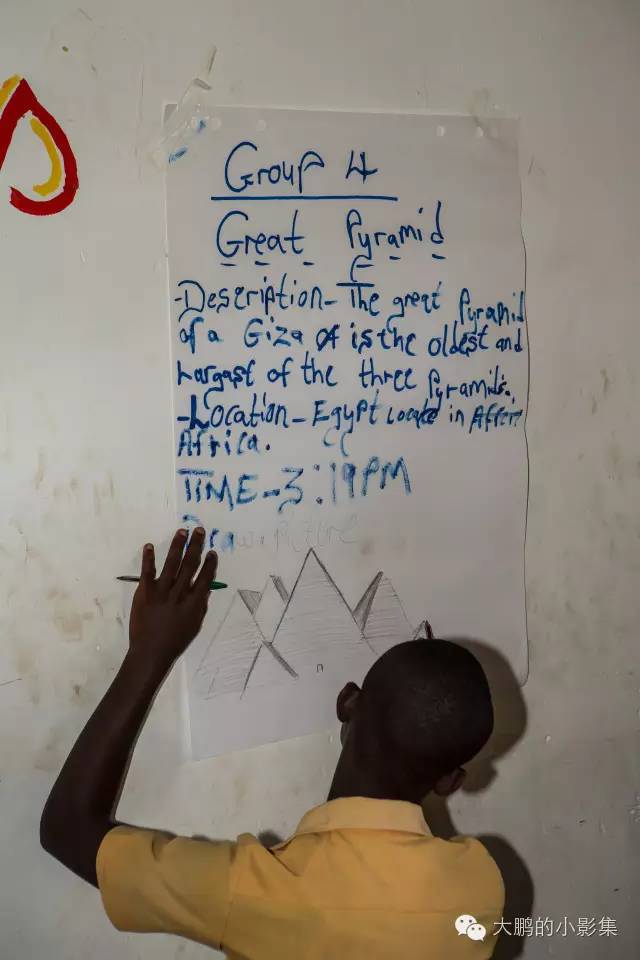 Group 4
Great Pyramid
-Description- The great Pyramid
of a Giza is the oldest and
Largest of the three Pyramids.
-Location- Egypt Located in
Africa.
TIME-3:19PM
Draw Picture
大鹏的小影集